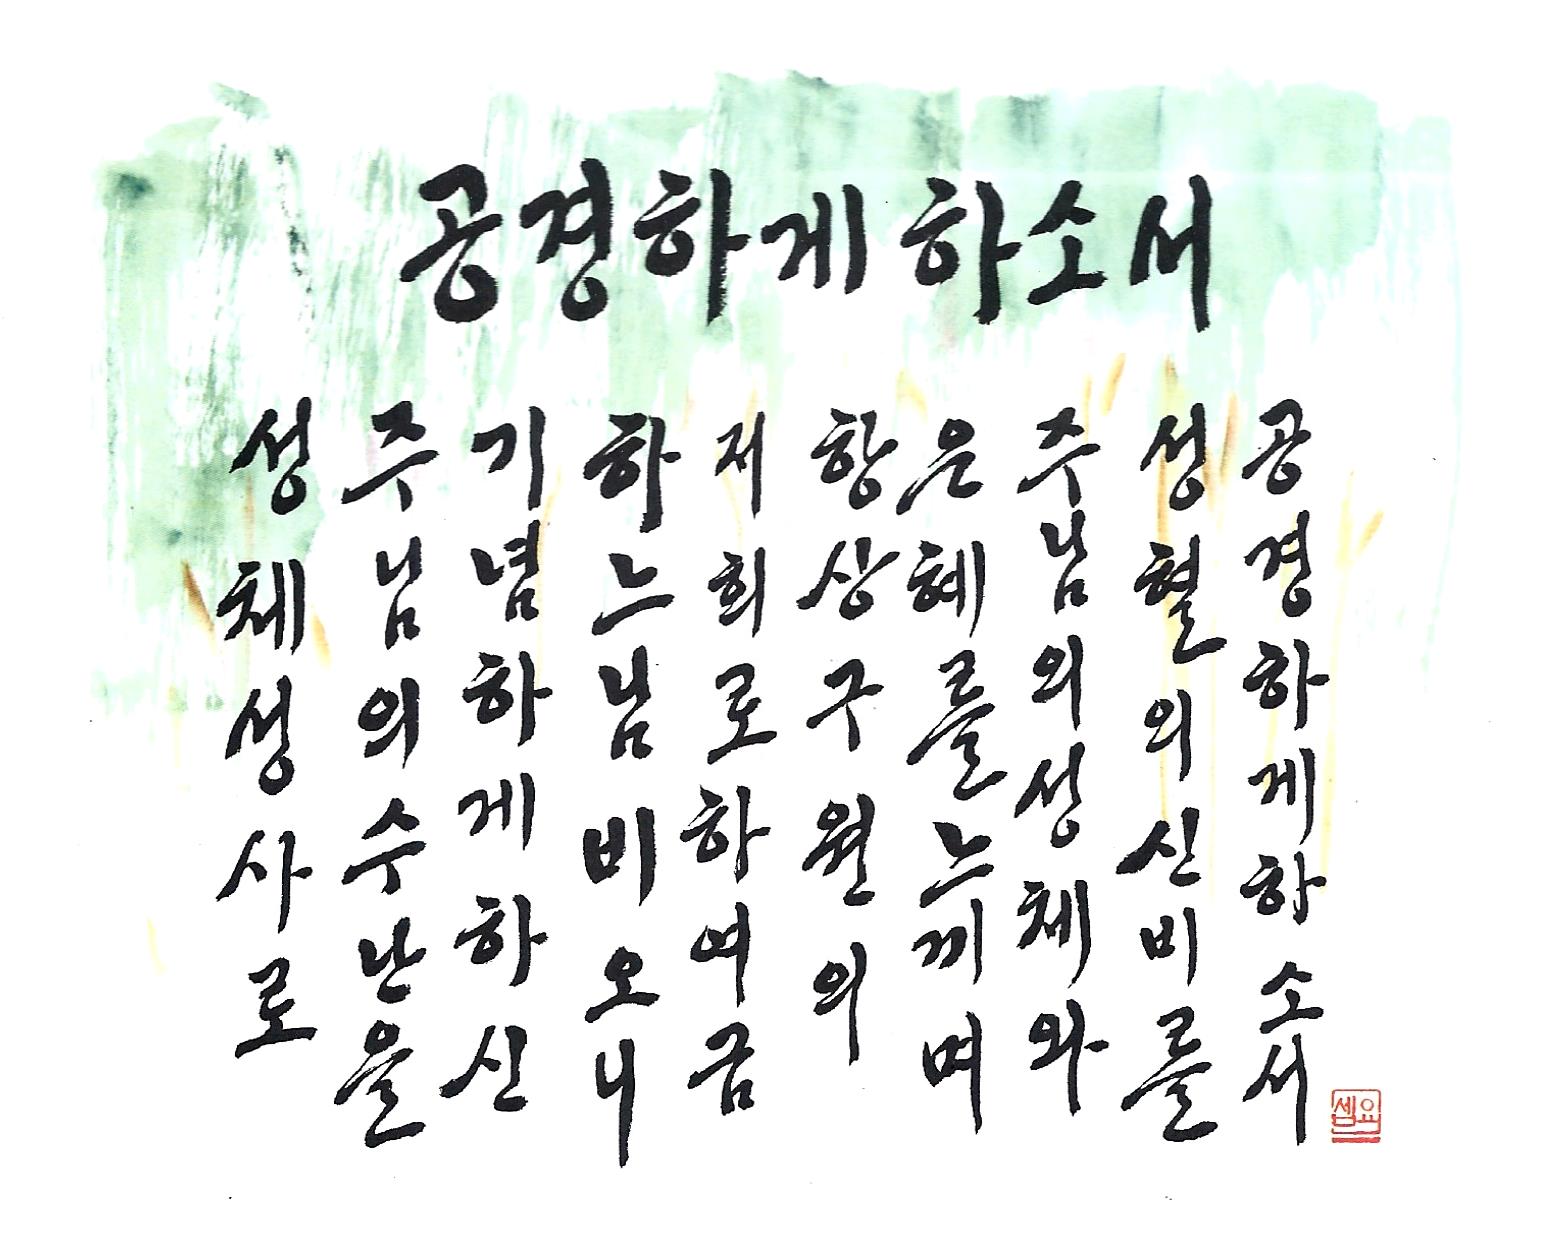 공경하게 하소서
성체성사로
주님의 수난을
기념하게 하신
하느님 비오니
저희로 하여금
항상 구원의
은혜를 느끼며
주님의 성체와
성혈의 신비를
공경하게 하소서
요셉